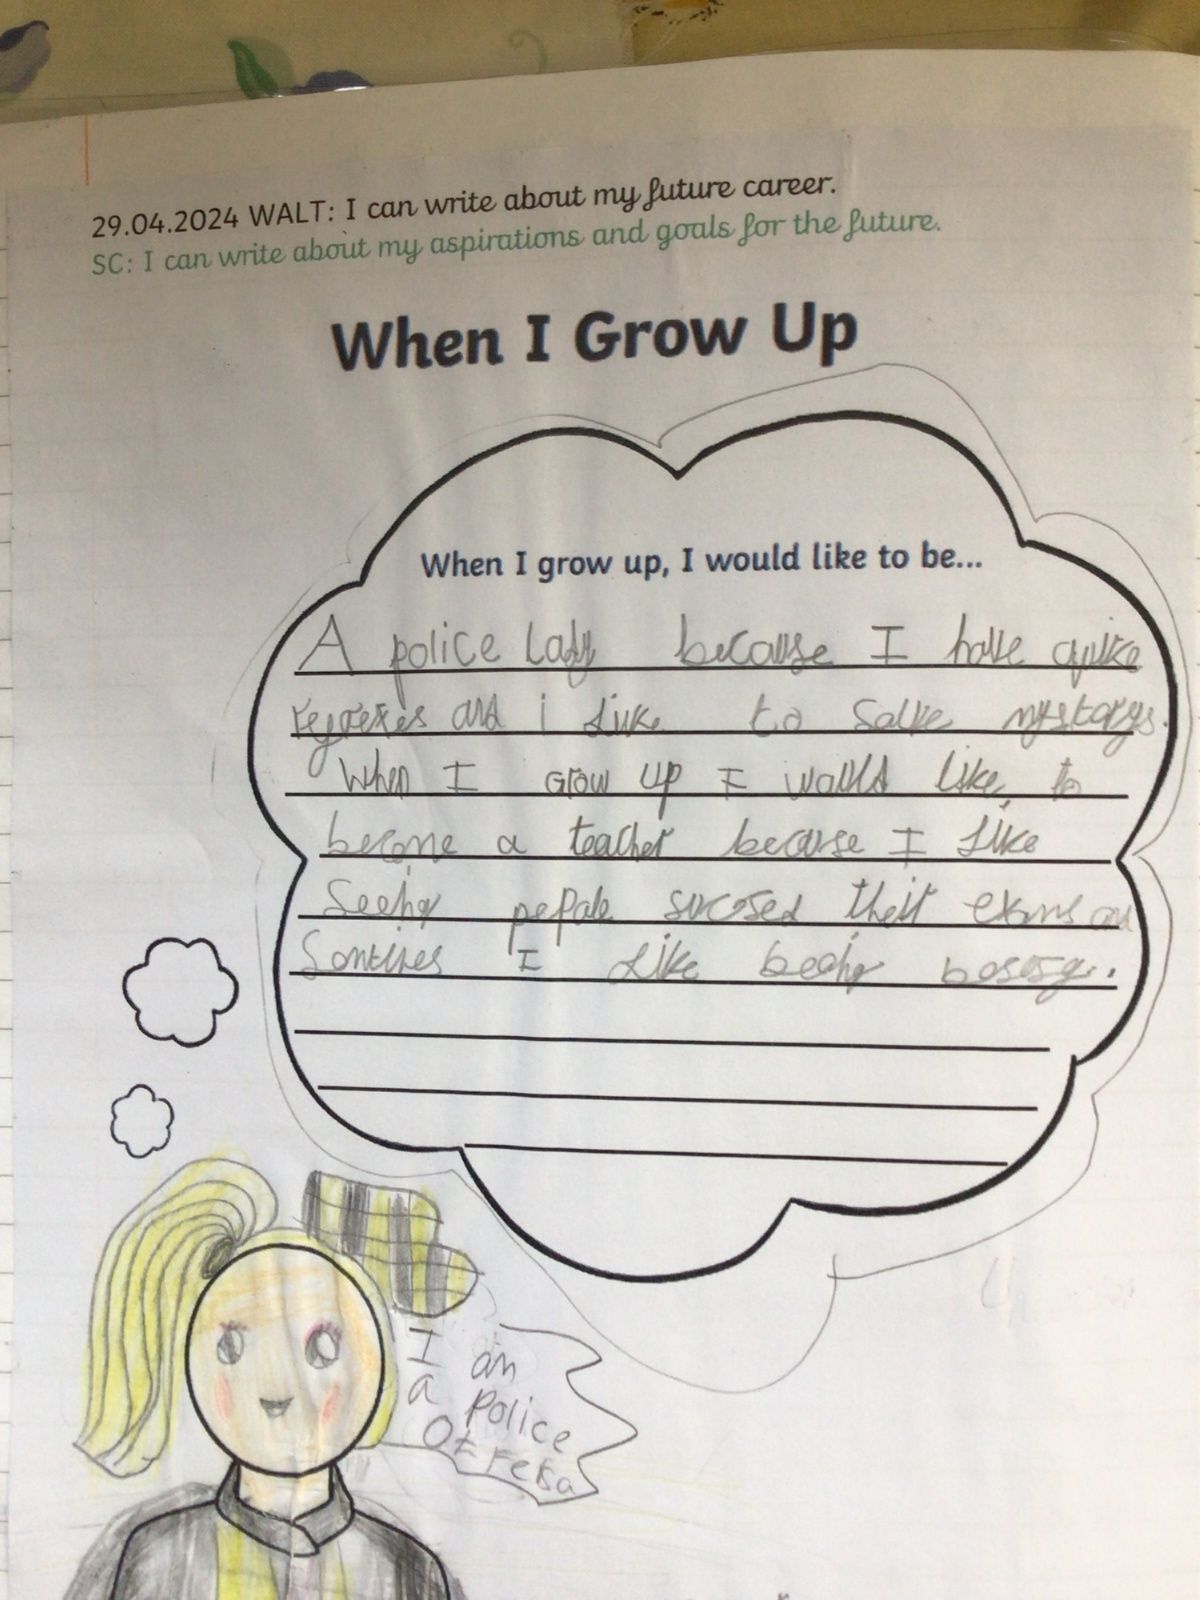 29.04.2024 WALT: I can write about my future career.
SC: I can write about my aspirations and goals for the future.
When I Grow Up
When I grow up, I would like to be...
A police Lady because I have quike
and i like to solve
When I Grow up I would like to
become a teacher because I like
Seeing their exams
I Like being
I am
a Police